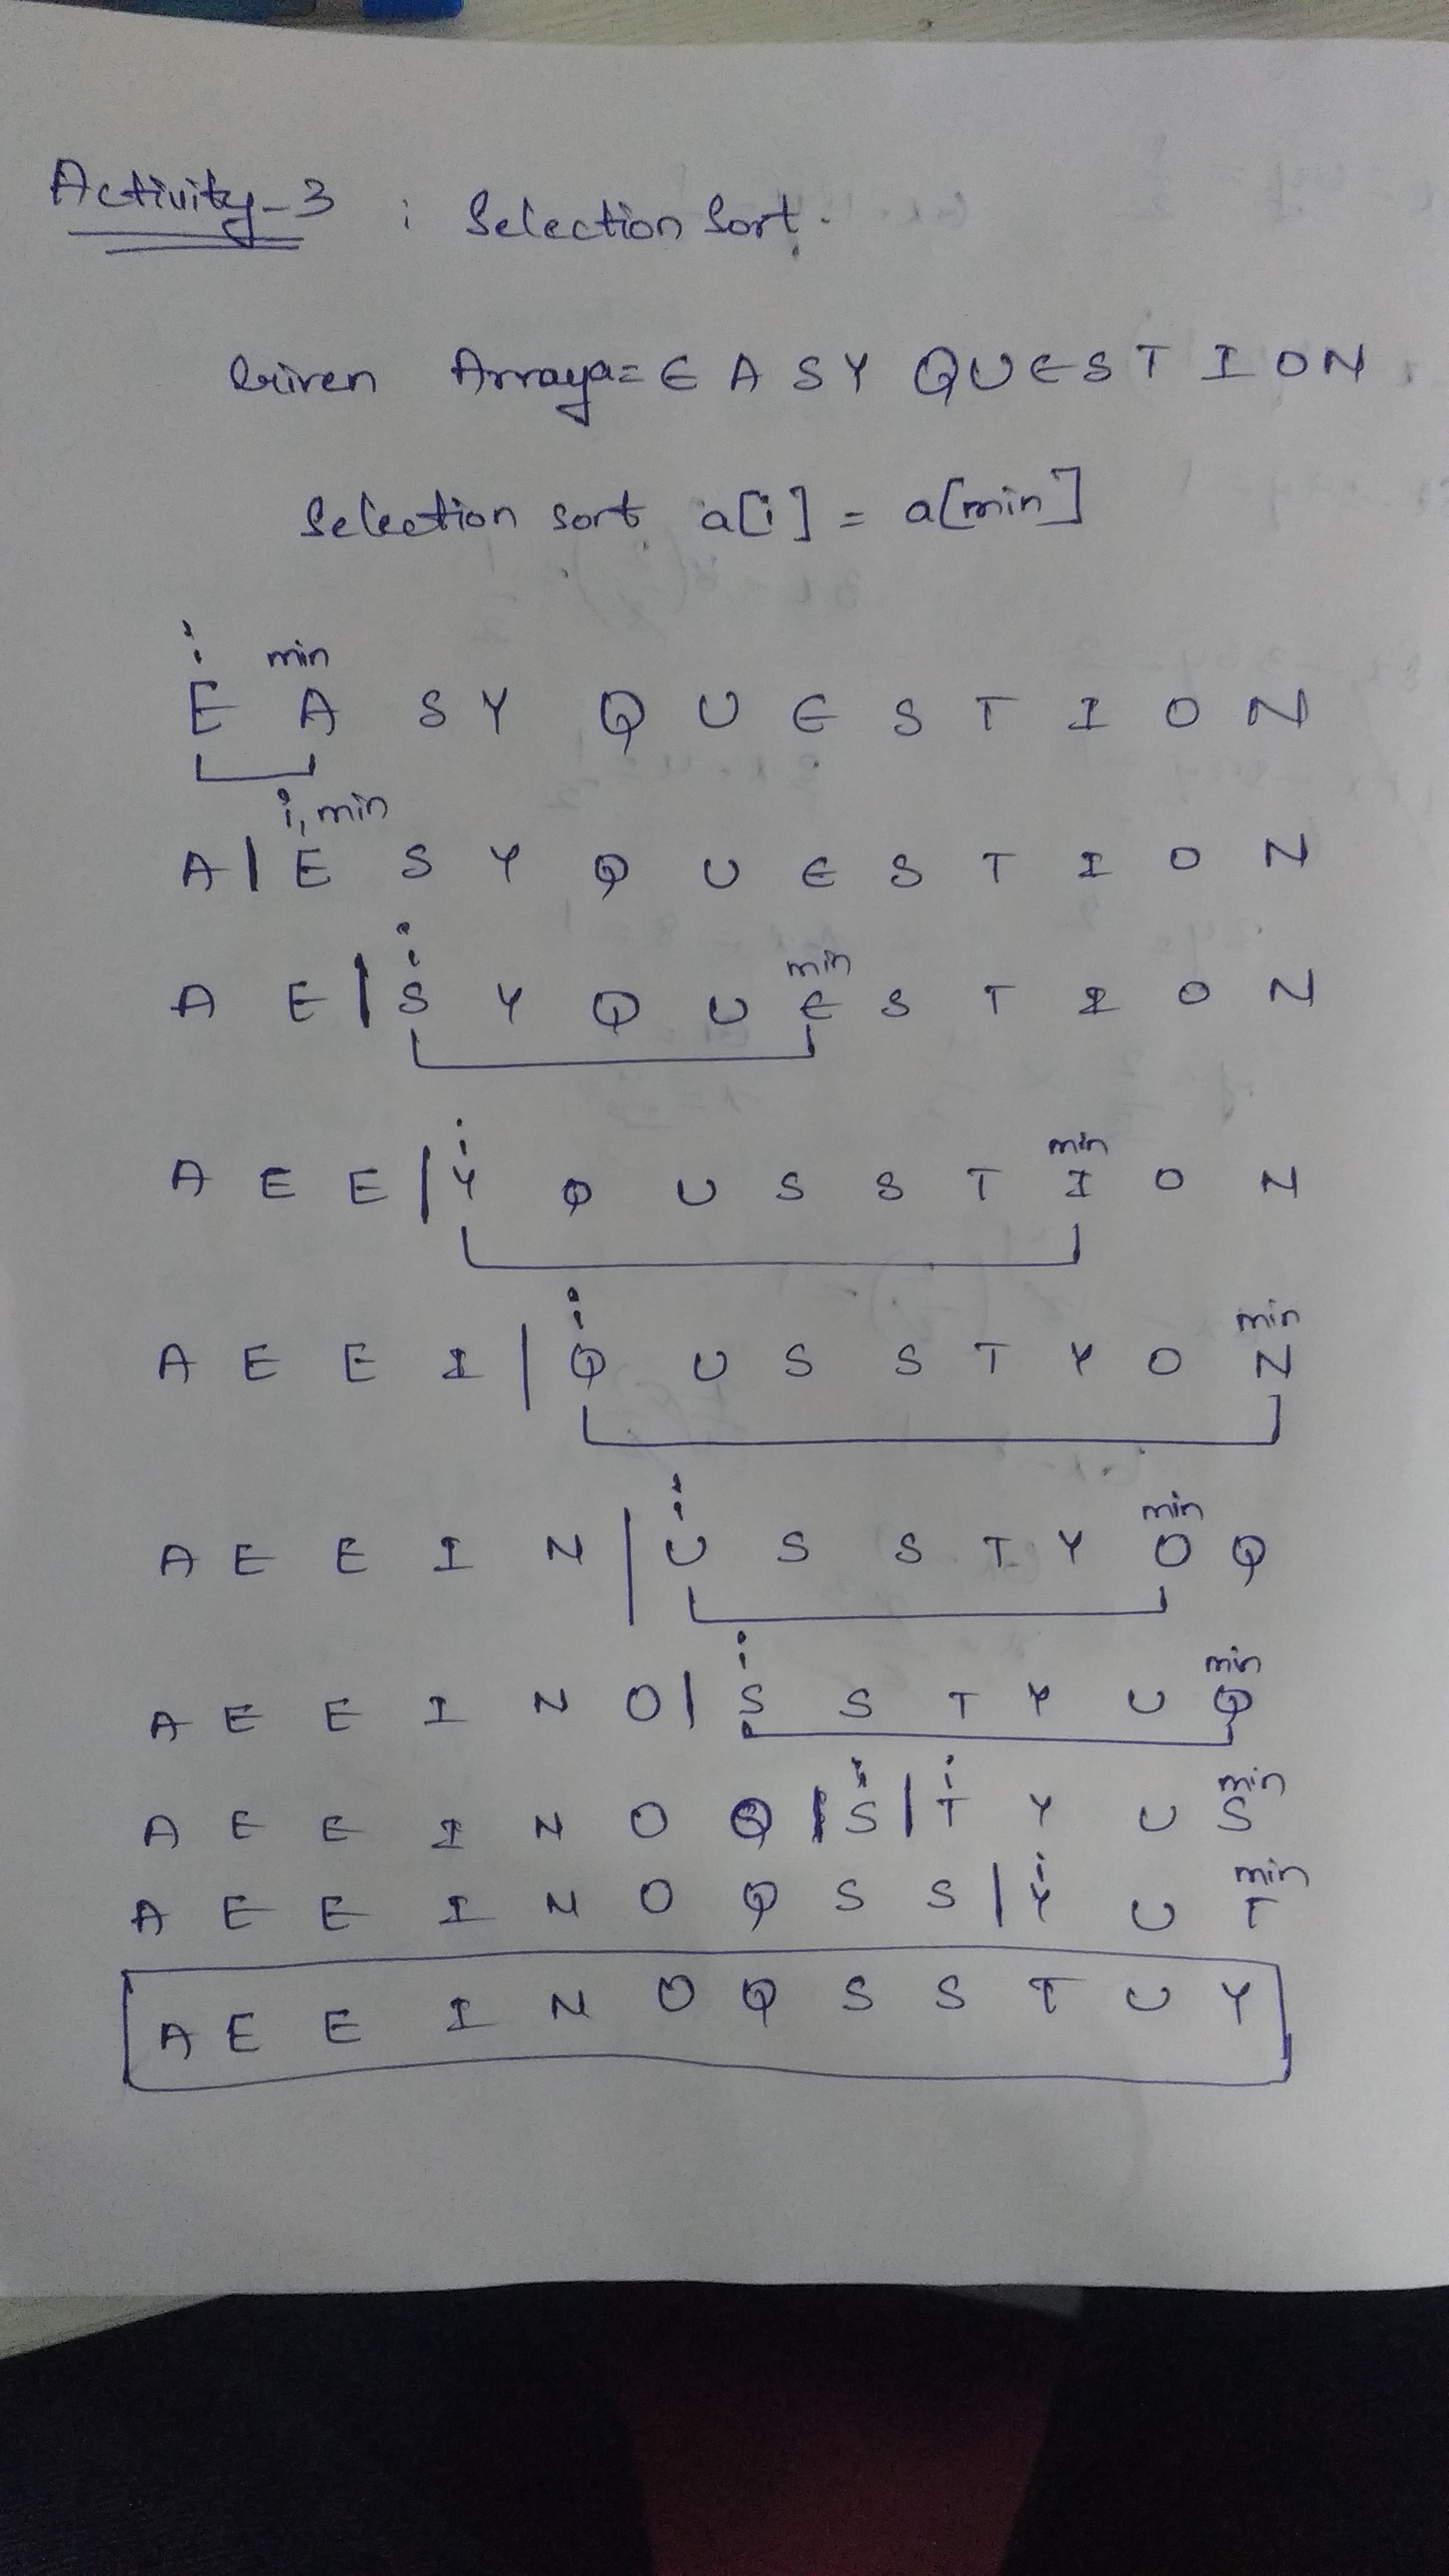 Activity-3 : Selection Sort.
Given Array a = E A S Y Q U E S T I O N
Selection sort a[i] = a[min]
i min
E A S Y Q U E S T I O N
i, min
A | E S Y Q U E S T I O N
i min
A E | S Y Q U E S T I O N
i min
A E E | Y Q U S S T I O N
i min
A E E I | Q U S S T Y O N
i min
A E E I N | U S S T Y O Q
i min
A E E I N O | S S T Y U Q
i i min
A E E I N O Q | S | T Y U S
i min
A E E I N O Q S S | Y U T
A E E I N O Q S S T U Y